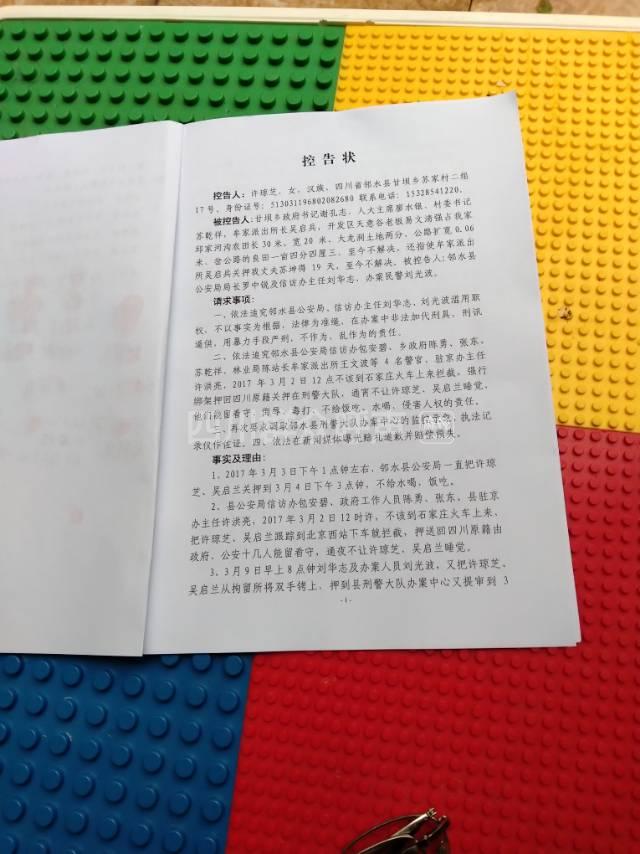 控告状
控告人：许琼芝，女，汉族，四川省邻水县甘坝乡苏家村二组
17号，身份证号：513031196802082680 联系电话：15328541220。
被控告人：甘坝乡政府书记谢孔志，人大主席廖水银，村委书记
苏乾祥，牟家派出所长吴启兵，开发区天意谷老板易文涛强占我家
邱家河沟农田长30米，宽20米，大龙洞土地两分，公路扩宽0.06
米，岔公路的良田一亩四分四厘三，至今不解决，还指使牟家派出
所吴启兵关押我丈夫苏坤得19天，至今不解决。被控告人：邻水县
公安局局长罗中锐及信访办主任刘华志，办案民警刘光波。
请求事项：
一、依法追究邻水县公安局、信访办主任刘华志，刘光波滥用职
权，不以事实为根据，法律为准绳，在办案中非法加代刑具，刑讯
逼供，用暴力手段严刑，不作为，乱作为的责任。
二、依法追究邻水县公安局信访办包安碧、乡政府陈勇、张东，
苏乾祥，林业局陈站长牟家派出所王文波等4名警官，驻京办主任
许洪亮，2017年3月2日12点不该到石家庄火车上来拦截。强行
绑架押回四川原籍关押在刑警大队，通宵不让许琼芝、吴启兰睡觉，
他们能留看守，侮辱、毒打、不给饭吃、水喝、侵害人权的责任。
三、再次恳求调取邻水县刑警大队办案中心的监控录像，执法记
录仪作佐证。四、依法在新闻媒体曝光赔礼道歉并赔偿损失。
事实及理由：
1、2017年3月3日下午1点钟左右，邻水县公安局一直把许琼
芝、吴启兰关押到3月4日下午3点钟，不给水喝，饭吃。
2、县公安局信访办包安碧、政府工作人员陈勇、张东，县驻京
办主任许洪亮，2017年3月2日12时许，不该到石家庄火车上来，
把许琼芝、吴启兰跟踪到北京西站下车就拦截，押送回四川原籍由
政府、公安十几人能留看守，通夜不让许琼芝、吴启兰睡觉。
3、3月9日早上8点钟刘华志及办案人员刘光波，又把许琼芝，
吴启兰从拘留所将双手铐上，押到县刑警大队办案中心又提审到3
- 1 -